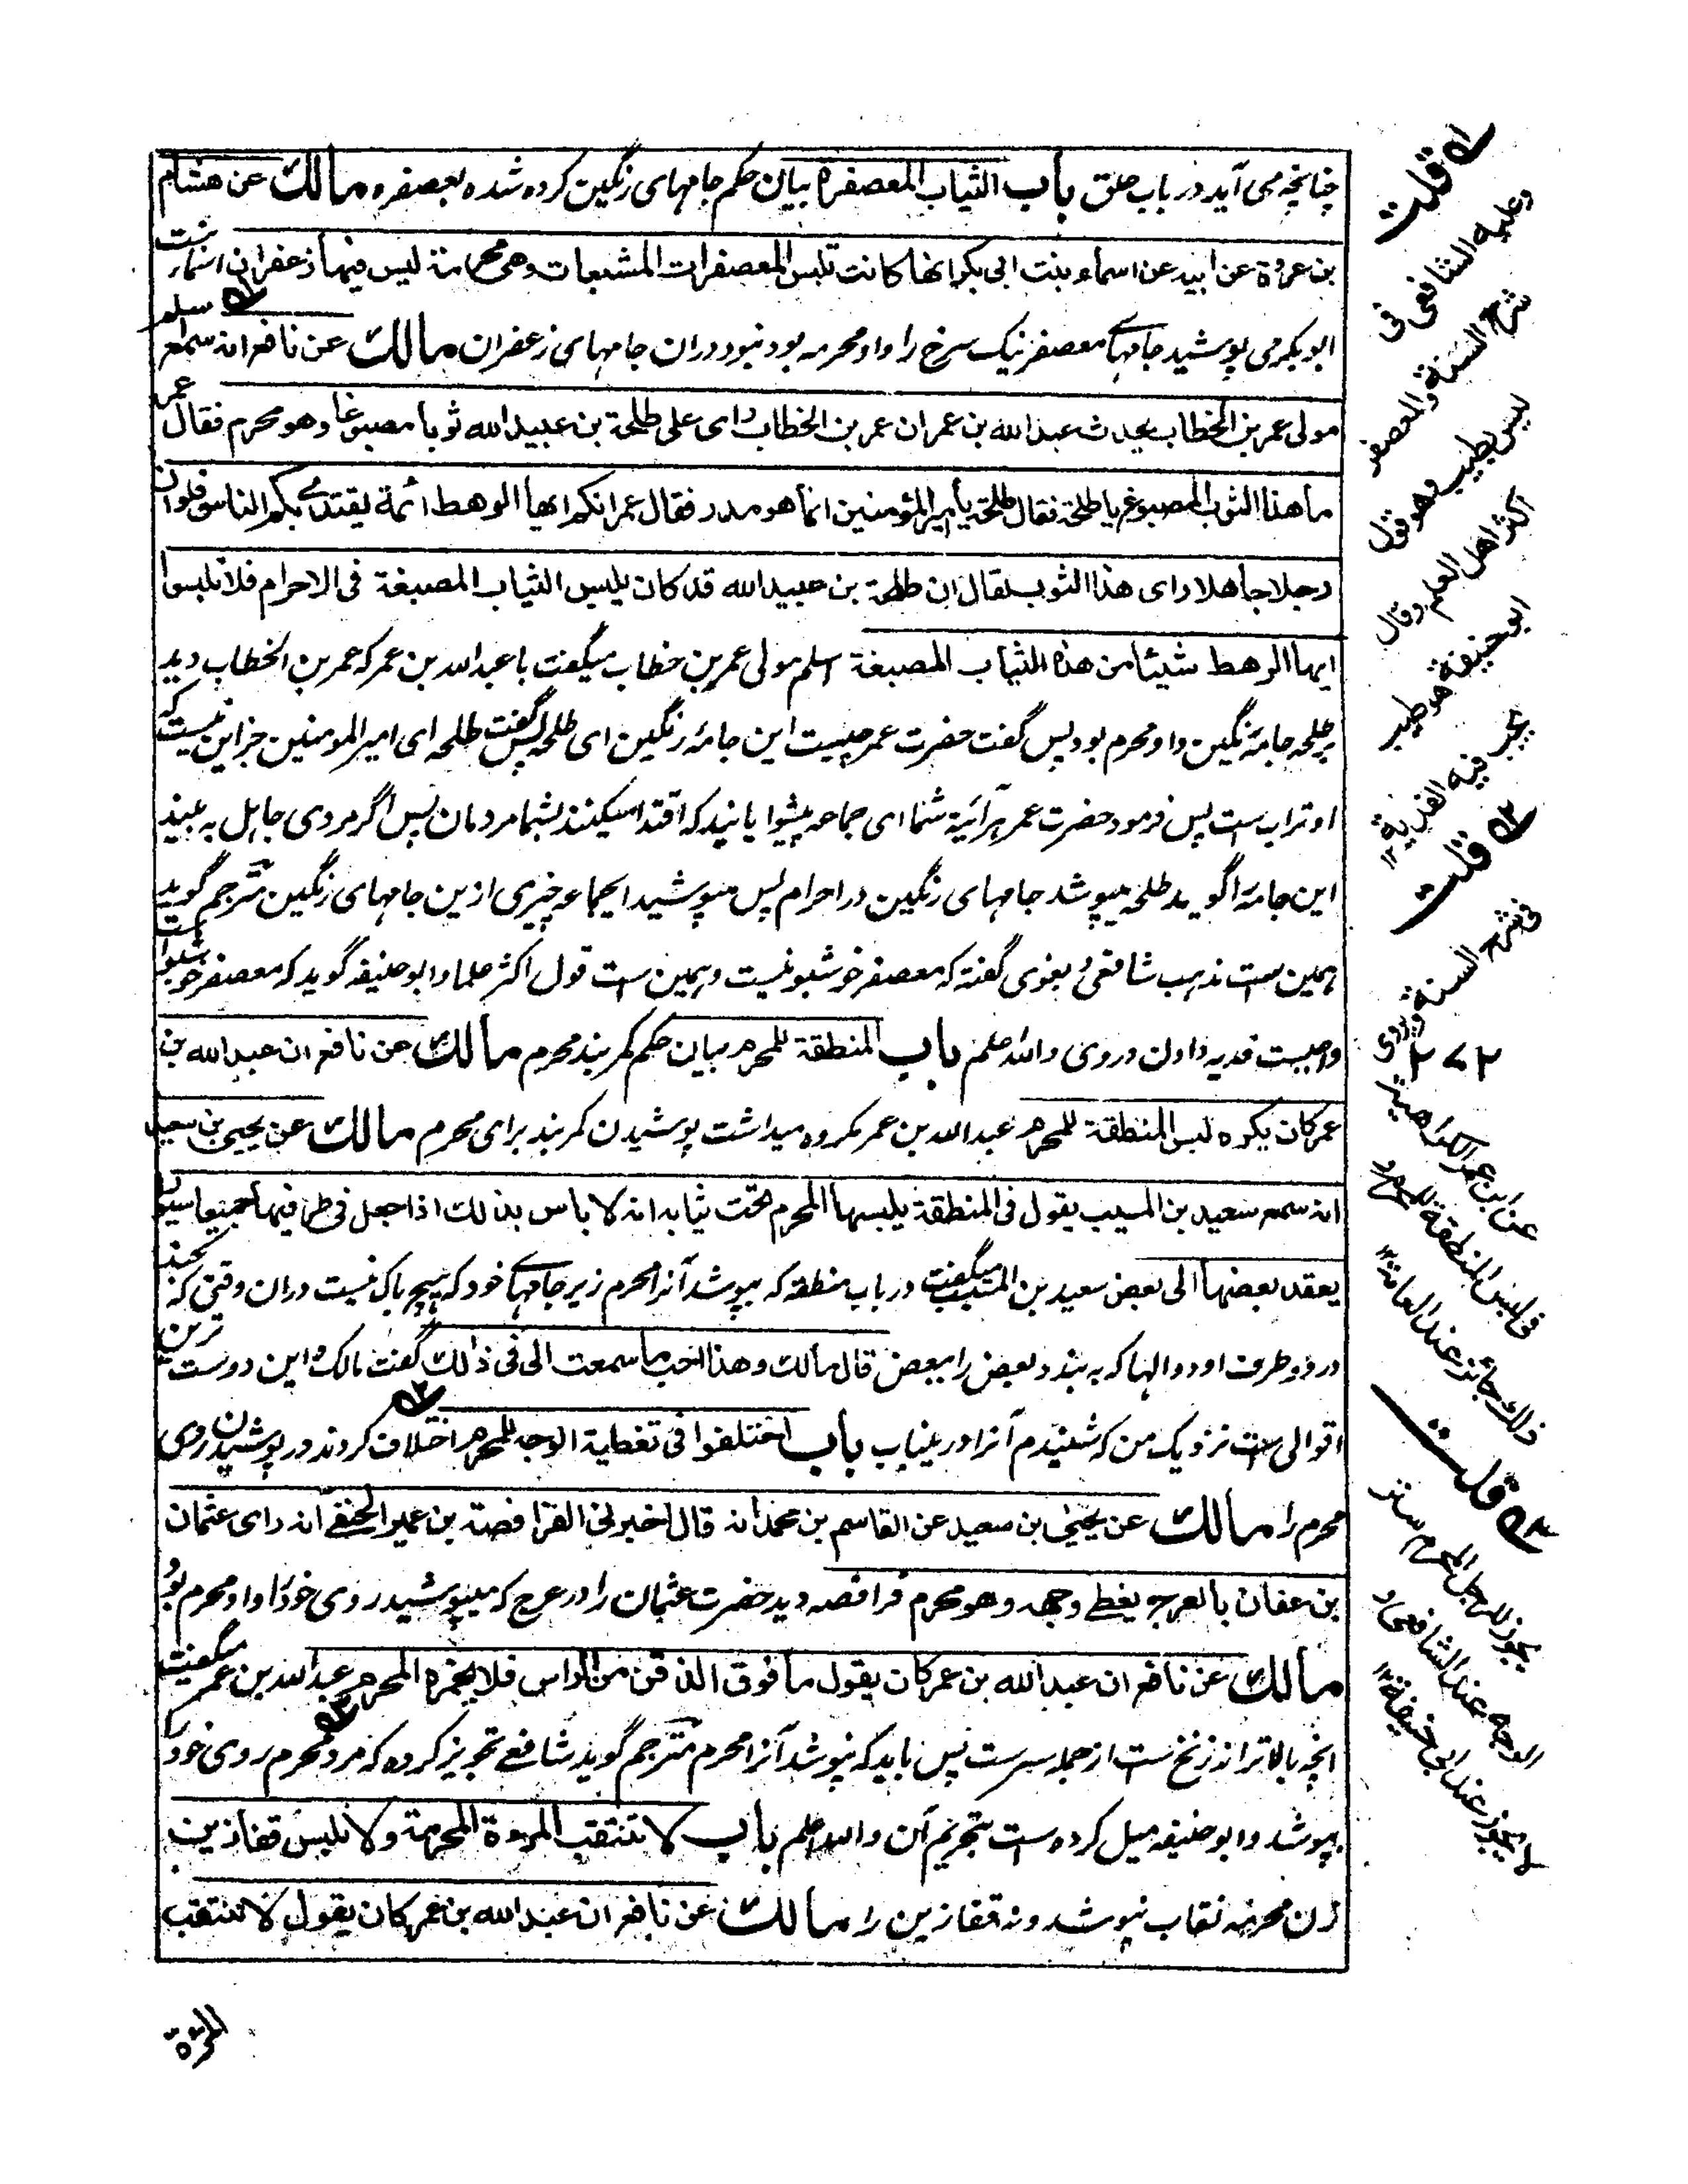 چنانچه می آید در باب حلق باب الثیاب المعصفرة بیان حکم جامهای رنگین کرده شده بعصفره مالك عن هشام
بن عروة عن ابیه عن اسماء بنت ابی بکر انها کانت تلبس المعصفرات المشبعات وهی محرمة لیس فیها زعفران اسماء بنت
ابوبکر می پوشید جامهای معصفر نیک سرخ را و او محرمه بود نبود دران جامهای زعفران مالك عن نافع انه سمع اسلم
مولی عمر بن الخطاب یحدث عبد الله بن عمر ان عمر بن الخطاب رای علی طلحة بن عبید الله ثوبا مصبوغا وهو محرم فقال عمر
ما هذا الثوب المصبوغ یا طلحة فقال طلحة یا امیر المؤمنین انما هو مدر فقال عمر انکم ایها الرهط ائمة یقتدی بکم الناس فلو ان
رجلا جاهلا رای هذا الثوب لقال ان طلحة بن عبید الله قد کان یلبس الثیاب المصبغة فی الاحرام فلا تلبسوا
ایها الرهط شیئا من هذه الثیاب المصبغة اسلم مولی عمر بن خطاب میگفت با عبد الله بن عمر که عمر بن الخطاب دید
بر طلحه جامه رنگین و او محرم بود پس گفت حضرت عمر چیست این جامه رنگین ای طلحه پس گفت طلحه ای امیر المومنین جز این نیست که
او تراب ست پس فرمود حضرت عمر هر آئینه شما ای جماعه پیشوایانید که اقتدا میکنند بشما مردمان پس اگر مردی جاهل به بیند
این جامه را گوید طلحه میپوشد جامهای رنگین در احرام پس مپوشید ایجماعه چیزی ازین جامهای رنگین مترجم گوید
همین ست مذهب شافعی و بغوی گفته که معصفر خوشبو نیست و همین ست قول اکثر علما و ابو حنیفه گوید که معصفر خوشبو است
واجبست فدیه دادن در وی والله اعلم باب المنطقة للمحرم بیان حکم کمربند محرم مالك عن نافع ان عبد الله بن
عمر کان یکره لبس المنطقة للمحرم عبد الله بن عمر مکروه میداشت پوشیدن کمربند برای محرم مالك عن یحیی بن سعید
انه سمع سعید بن المسیب یقول فی المنطقة یلبسها المحرم تحت ثیابه انه لا باس بذلك اذا جعل فی طرفیها جمیعا سیورا
یعقد بعضها الی بعض سعید بن المسیب میگفت در باب منطقه که بپوشد آنرا محرم زیر جامهای خود که هیچ باک نیست دران وقتی که بکند
در دو طرف او دوالها که به بندد بعض را ببعض قال مالك وهذا احب ما سمعت الی فی ذلك گفت مالک و این دوست ترین
اقوالی ست نزدیک من که شنیدم آنرا درینباب باب اختلفوا فی تغطیة الوجه للمحرم اختلاف کردند در پوشیدن روی
محرم را مالك عن یحیی بن سعید عن القاسم بن محمد انه قال اخبرنی الفرافصة بن عمیر الحنفی انه رای عثمان
بن عفان بالعرج یغطی وجهه وهو محرم فرافصه دید حضرت عثمان را در عرج که میپوشید روی خود را و او محرم بود
مالك عن نافع ان عبد الله بن عمر کان یقول ما فوق الذقن من الراس فلا یخمره المحرم عبد الله بن عمر میگفت
انچه بالاتر از زنخ ست از جمله سر ست پس باید که نپوشد آنرا محرم مترجم گوید شافعی تجویز کرده که مرد محرم روی خود را
بپوشد و ابو حنیفه میل کرده ست بتحریم آن والله اعلم باب لا تنتقب المرءة المحرمة ولا تلبس قفازین
زن محرمه نقاب نپوشد و نه قفازین را مالك عن نافع ان عبد الله بن عمر کان یقول لا تنتقب
المرءة
۱ه قلت
وعلیه الشافعی فی
شرح السنة والمعصفر
لیس بطیب وهو قول
اکثر اهل العلم وقال
ابو حنیفة هو طیب
یجب فیه الفدیة ۱۲
۲ه قلت
فی شرح السنة وروی
۲۷۲
عن ابن عمر الکراهیة
فی لبس المنطقة للمحرم و
ذلك جائز عند العامة ۱۲
۳ه قلت
یجوز للرجل المحرم ستر
الوجه عند الشافعی و
لا یجوز عند ابی حنیفة ۱۲